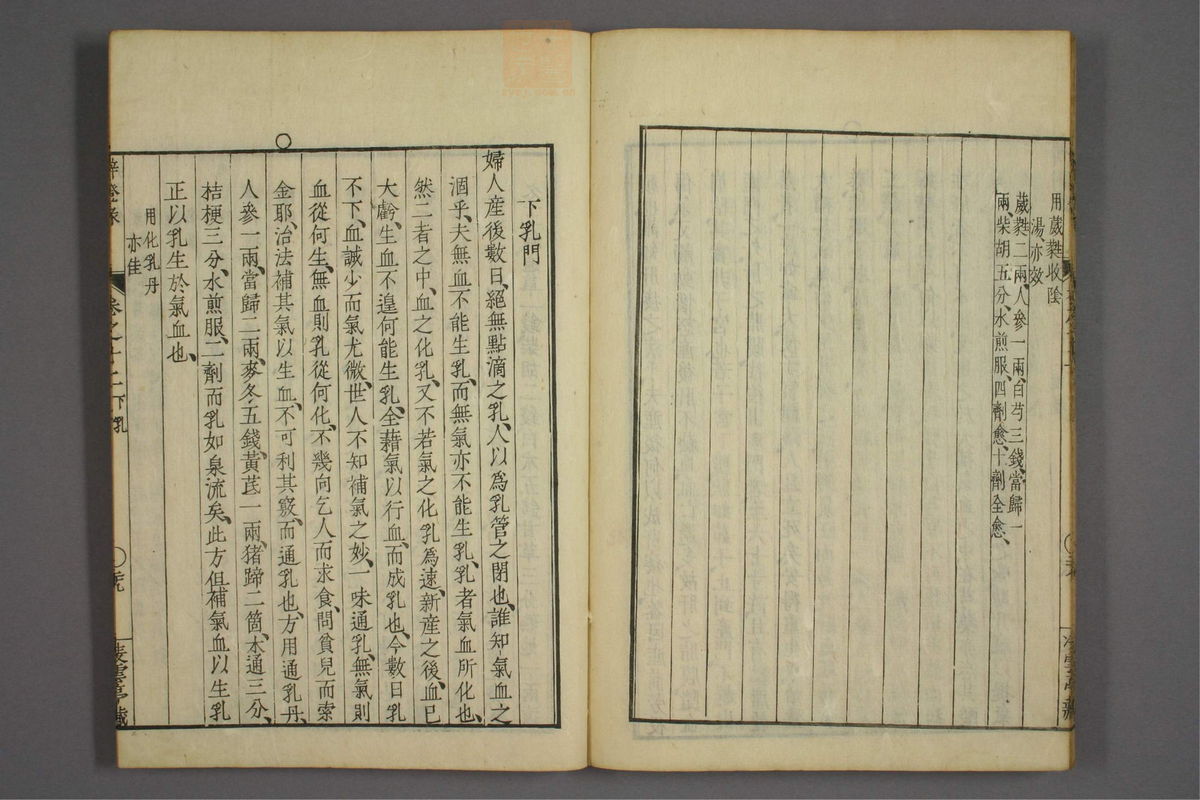 用葳蕤收陰
湯亦效
葳蕤二兩、人參一兩、白芍三錢、當歸一
兩、柴胡五分、水煎服、四劑愈、十劑全愈、
下乳門
婦人産後數日、絕無點滴之乳、人以爲乳管之閉也、誰知氣血之
涸乎、夫無血不能生乳、而無氣亦不能生乳、乳者氣血所化也、
然二者之中、血之化乳、又不若氣之化乳爲速、新産之後、血已
大虧、生血不遑、何能生乳、全藉氣以行血、而成乳也、今數日乳
不下、血誠少而氣尤微、世人不知補氣之妙、一味通乳、無氣則
血從何生、無血則乳從何化、不幾向乞人而求食、問貧兒而索
金耶、治法補其氣以生血、不可利其竅、而通乳也、方用通乳丹、
人參一兩、當歸二兩、麥冬五錢、黃芪一兩、猪蹄二箇、木通三分、
桔梗三分、水煎服、二劑而乳如泉流矣、此方但補氣血以生乳
正以乳生於氣血也、
用化乳丹
亦佳
辨證錄
卷之十二 下乳